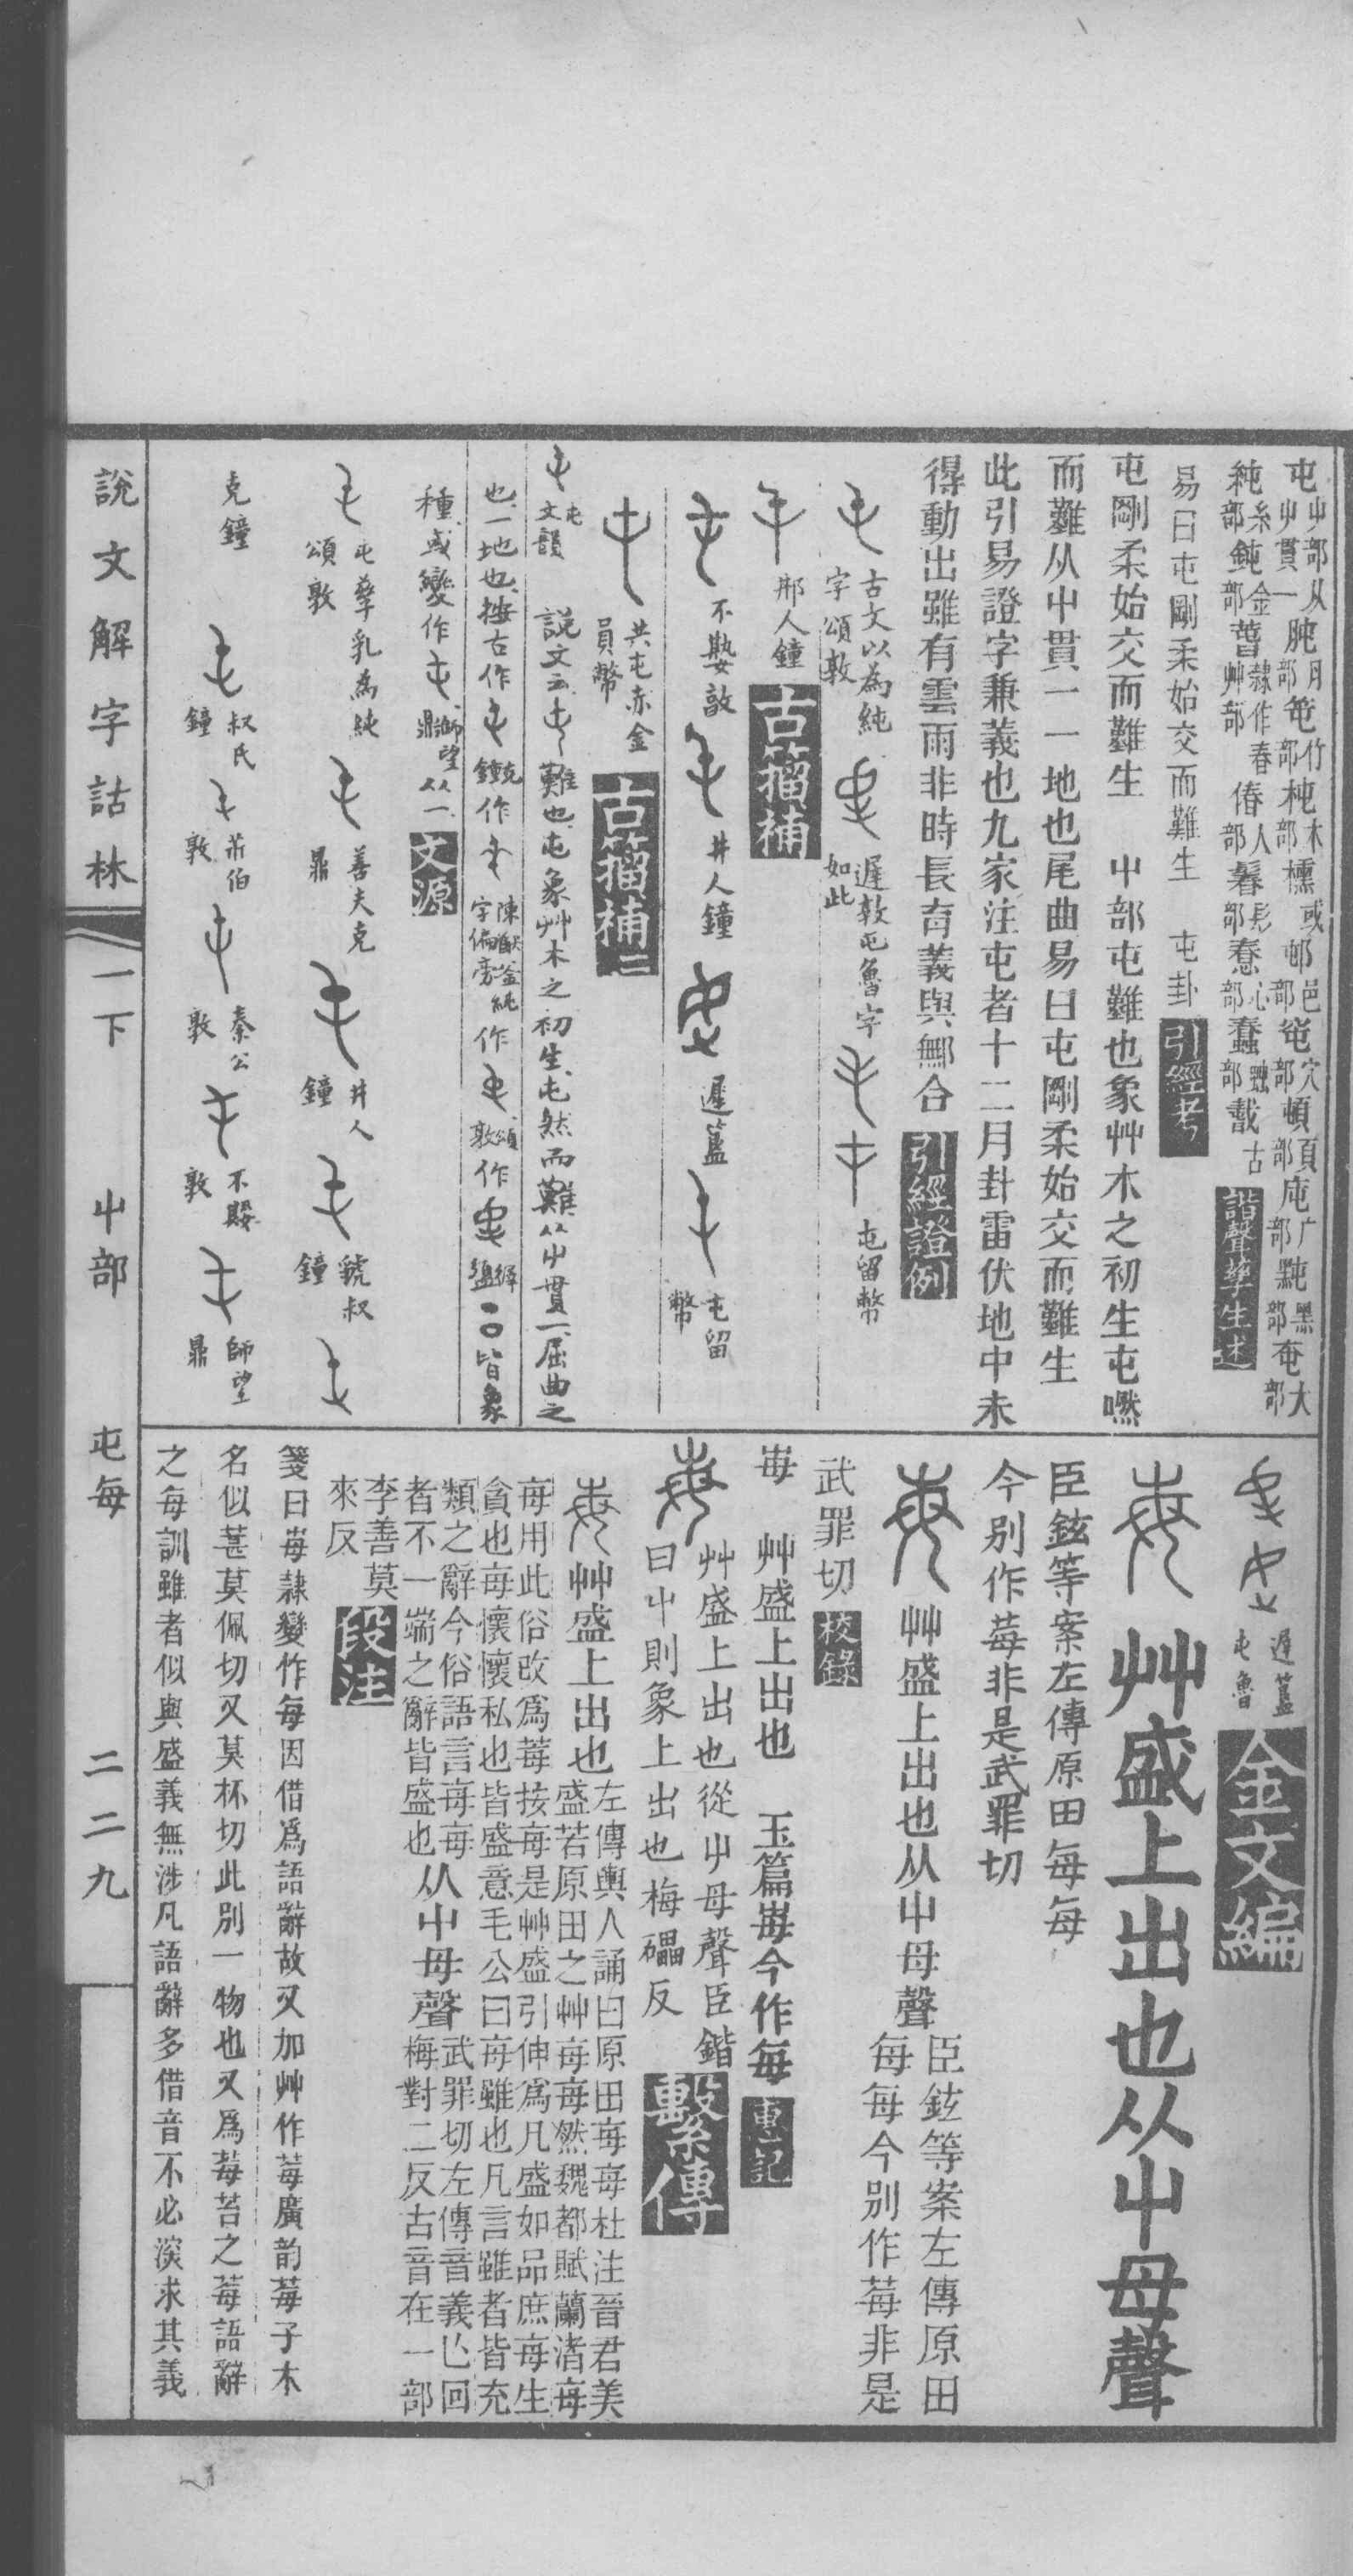 屯屮部从屮貫一肫月部笔竹部杶木部櫄或邨邑部窀穴部頓頁部庉广部黗黑部奄大部
純糸部鈍金部萅艸部隸作春偆人部鬊髟部惷心部蠢䖵部𢧨古 諧聲孳生述
易曰屯剛柔始交而難生 屯卦 引經考
屯剛柔始交而難生 屮部屯難也象艸木之初生屯㬗
而難从屮貫一一地也尾曲易曰屯剛柔始交而難生
此引易證字兼義也九家注屯者十二月卦雷伏地中未
得動出雖有雲雨非時長育義與鄦合 引經證例
古文以為純字頌敦 遲敦屯魯字如此 屯留幣
邢人鐘 古籀補
不𡢁敦 井人鐘 遲簋 屯留幣
共屯赤金員幣 古籀補二
屯文韻 說文云 難也屯象艸木之初生屯然而難从屮貫一屈曲之
也一地也按古作 克鐘作 陳猷釜純字偏旁作 頌敦作 遲簋 皆象
種或變作 師望鼎从一 文源
屯孳乳為純頌敦 善夫克鼎 井人鐘 虢叔鐘
克鐘 叔氏鐘 芇伯敦 秦公敦 不𡢁敦 師望鼎
遲簋屯魯 金文編
艸盛上出也从屮母聲
臣鉉等案左傳原田每每
今別作莓非是武罪切
艸盛上出也从屮母聲臣鉉等案左傳原田每每今別作莓非是
武罪切 校錄
每 艸盛上出也 玉篇每今作每 惠記
艸盛上出也從屮母聲臣鍇曰屮則象上出也梅礧反 繫傳
艸盛上出也左傳輿人誦曰原田每每杜注晉君美盛若原田之艸每每然魏都賦蘭渚每
每用此俗改爲莓按每是艸盛引伸爲凡盛如品庶每生貪也每懷懷私也皆盛意毛公曰每雖也凡言雖者皆充
類之辭今俗語言每每者不一端之辭皆盛也从屮母聲武罪切左傳音義亾回梅對二反古音在一部
李善莫來反 段注
箋曰每隸變作每因借爲語辭故又加艸作莓廣韵莓子木
名似葚莫佩切又莫杯切此別一物也又爲莓苔之莓語辭
之每訓雖者似與盛義無涉凡語辭多借音不必深求其義
說文解字詁林 一下 屮部 屯每 二二九